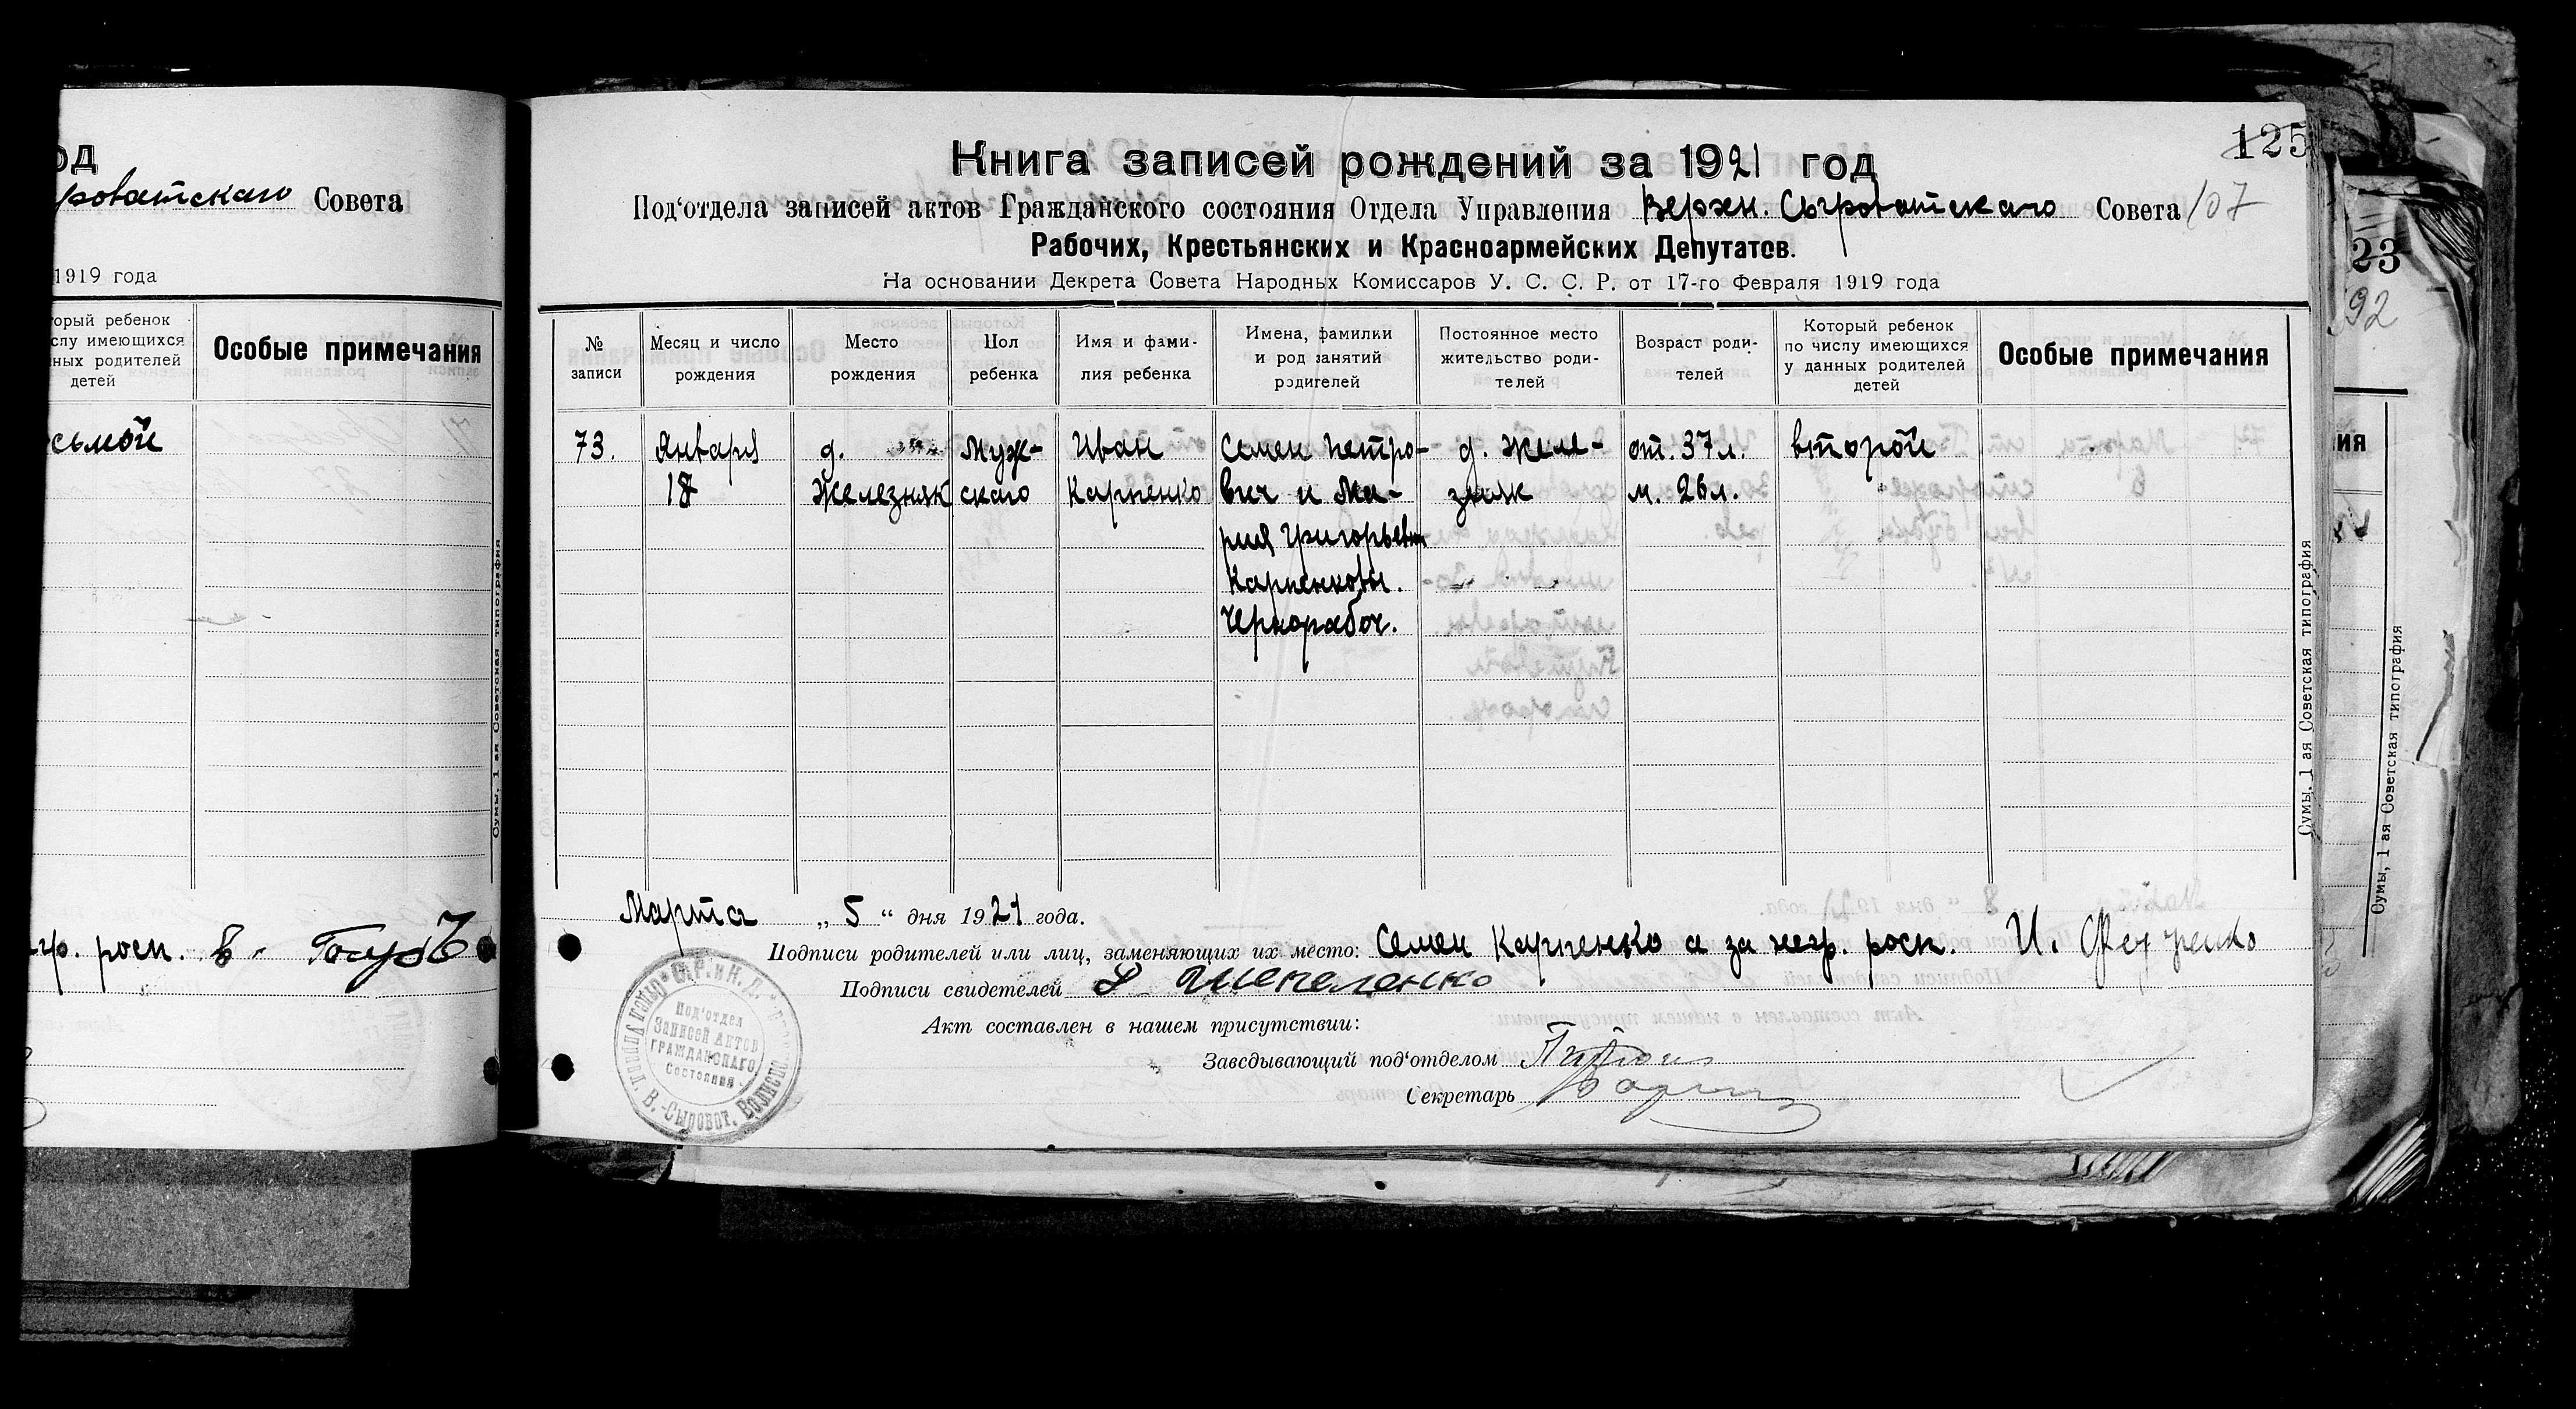 од
роватскаго Совета
1919 года
орый ребенок
слу имеющихся
ных родителей
детей
Особые примечания
сьмой
гр. росп.
Сумы, 1 ая Советская типография
125
107
Книга записей рождений за 1921 год
Под‘отдела записей актов Гражданского состояния Отдела Управления Верхн. Сыроватскаго Совета
Рабочих, Крестьянских и Красноармейских Депутатов.
На основании Декрета Совета Народных Комиссаров У. С. С. Р. от 17-го Февраля 1919 года
№ записи
Месяц и число рождения
Место рождения
Пол ребенка
Имя и фами-
лия ребенка
Имена, фамилии
и род занятий
родителей
Постоянное место
жительство роди-
телей
Возраст роди-
телей
Который ребенок
по числу имеющихся
у данных родителей
детей
Особые примечания
73.
Января
18
д.
Железняк
Муж-
скаго
Иван
Карпенко
Семен Петро-
вич и Ма-
рия Григорьевн
Карпенковы.
Чернорабоч.
д. Желе-
зняк
от. 37 л.
м. 26 л.
второй
Марта „ 5 “ дня 1921 года.
Подписи родителей или лиц, заменяющих их место: Семен Карпенко а за негр. росп. И.
Подписи свидетелей
Акт составлен в нашем присутствии:
Заведывающий под‘отделом
Секретарь
Под‘отдел
Записей Актов
Гражданскаго
Состояния
В.-Сыроват. Волиспо
Сумы, 1 ая Советская типография
23
92
ия
Сумы, 1 ая Советская типография